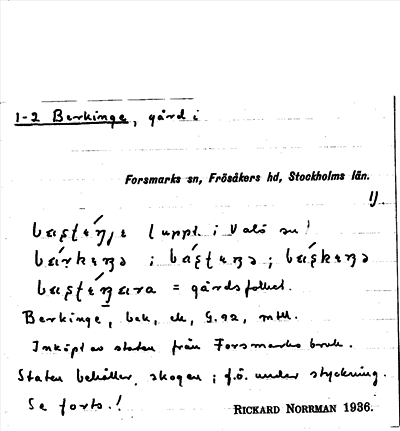 1-2 Berkinge, gård i
Forsmarks sn, Frösåkers hd, Stockholms län.
1)
(uppt. i Valö sn!
= gårdsfolket.
Berkinge, bek, ek, G.92, mtl.
Inköpt av staten från Forsmarks bruk.
Staten behåller skogen; f.ö. under styckning.
Se forts.!
RICKARD NORRMAN 1936.